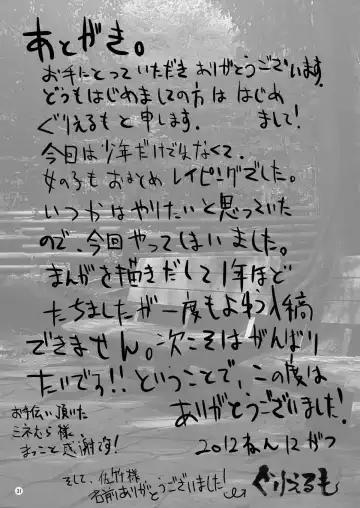 あとがき。
お手にとっていただきありがとうございます。
どうもはじめましての方ははじめ
まして!
ぐりえるもと申します。
今回は少年だけでなくて、
女の子もおまとめレイピングでした。
いつかはやりたいと思っていた
ので、今回やってしまいました。
まんがを描きだして1年ほど
たちましたが一度もよゆう入稿
できません。次こそはがんばり
たいでう!!ということで、この度は
ありがとうございました!
お手伝い頂いた
ミネむら様、
まっこと感謝です!
2012ねん12がつ
そして、佐竹様
名前ありがとうございました!
ぐりえるも
31